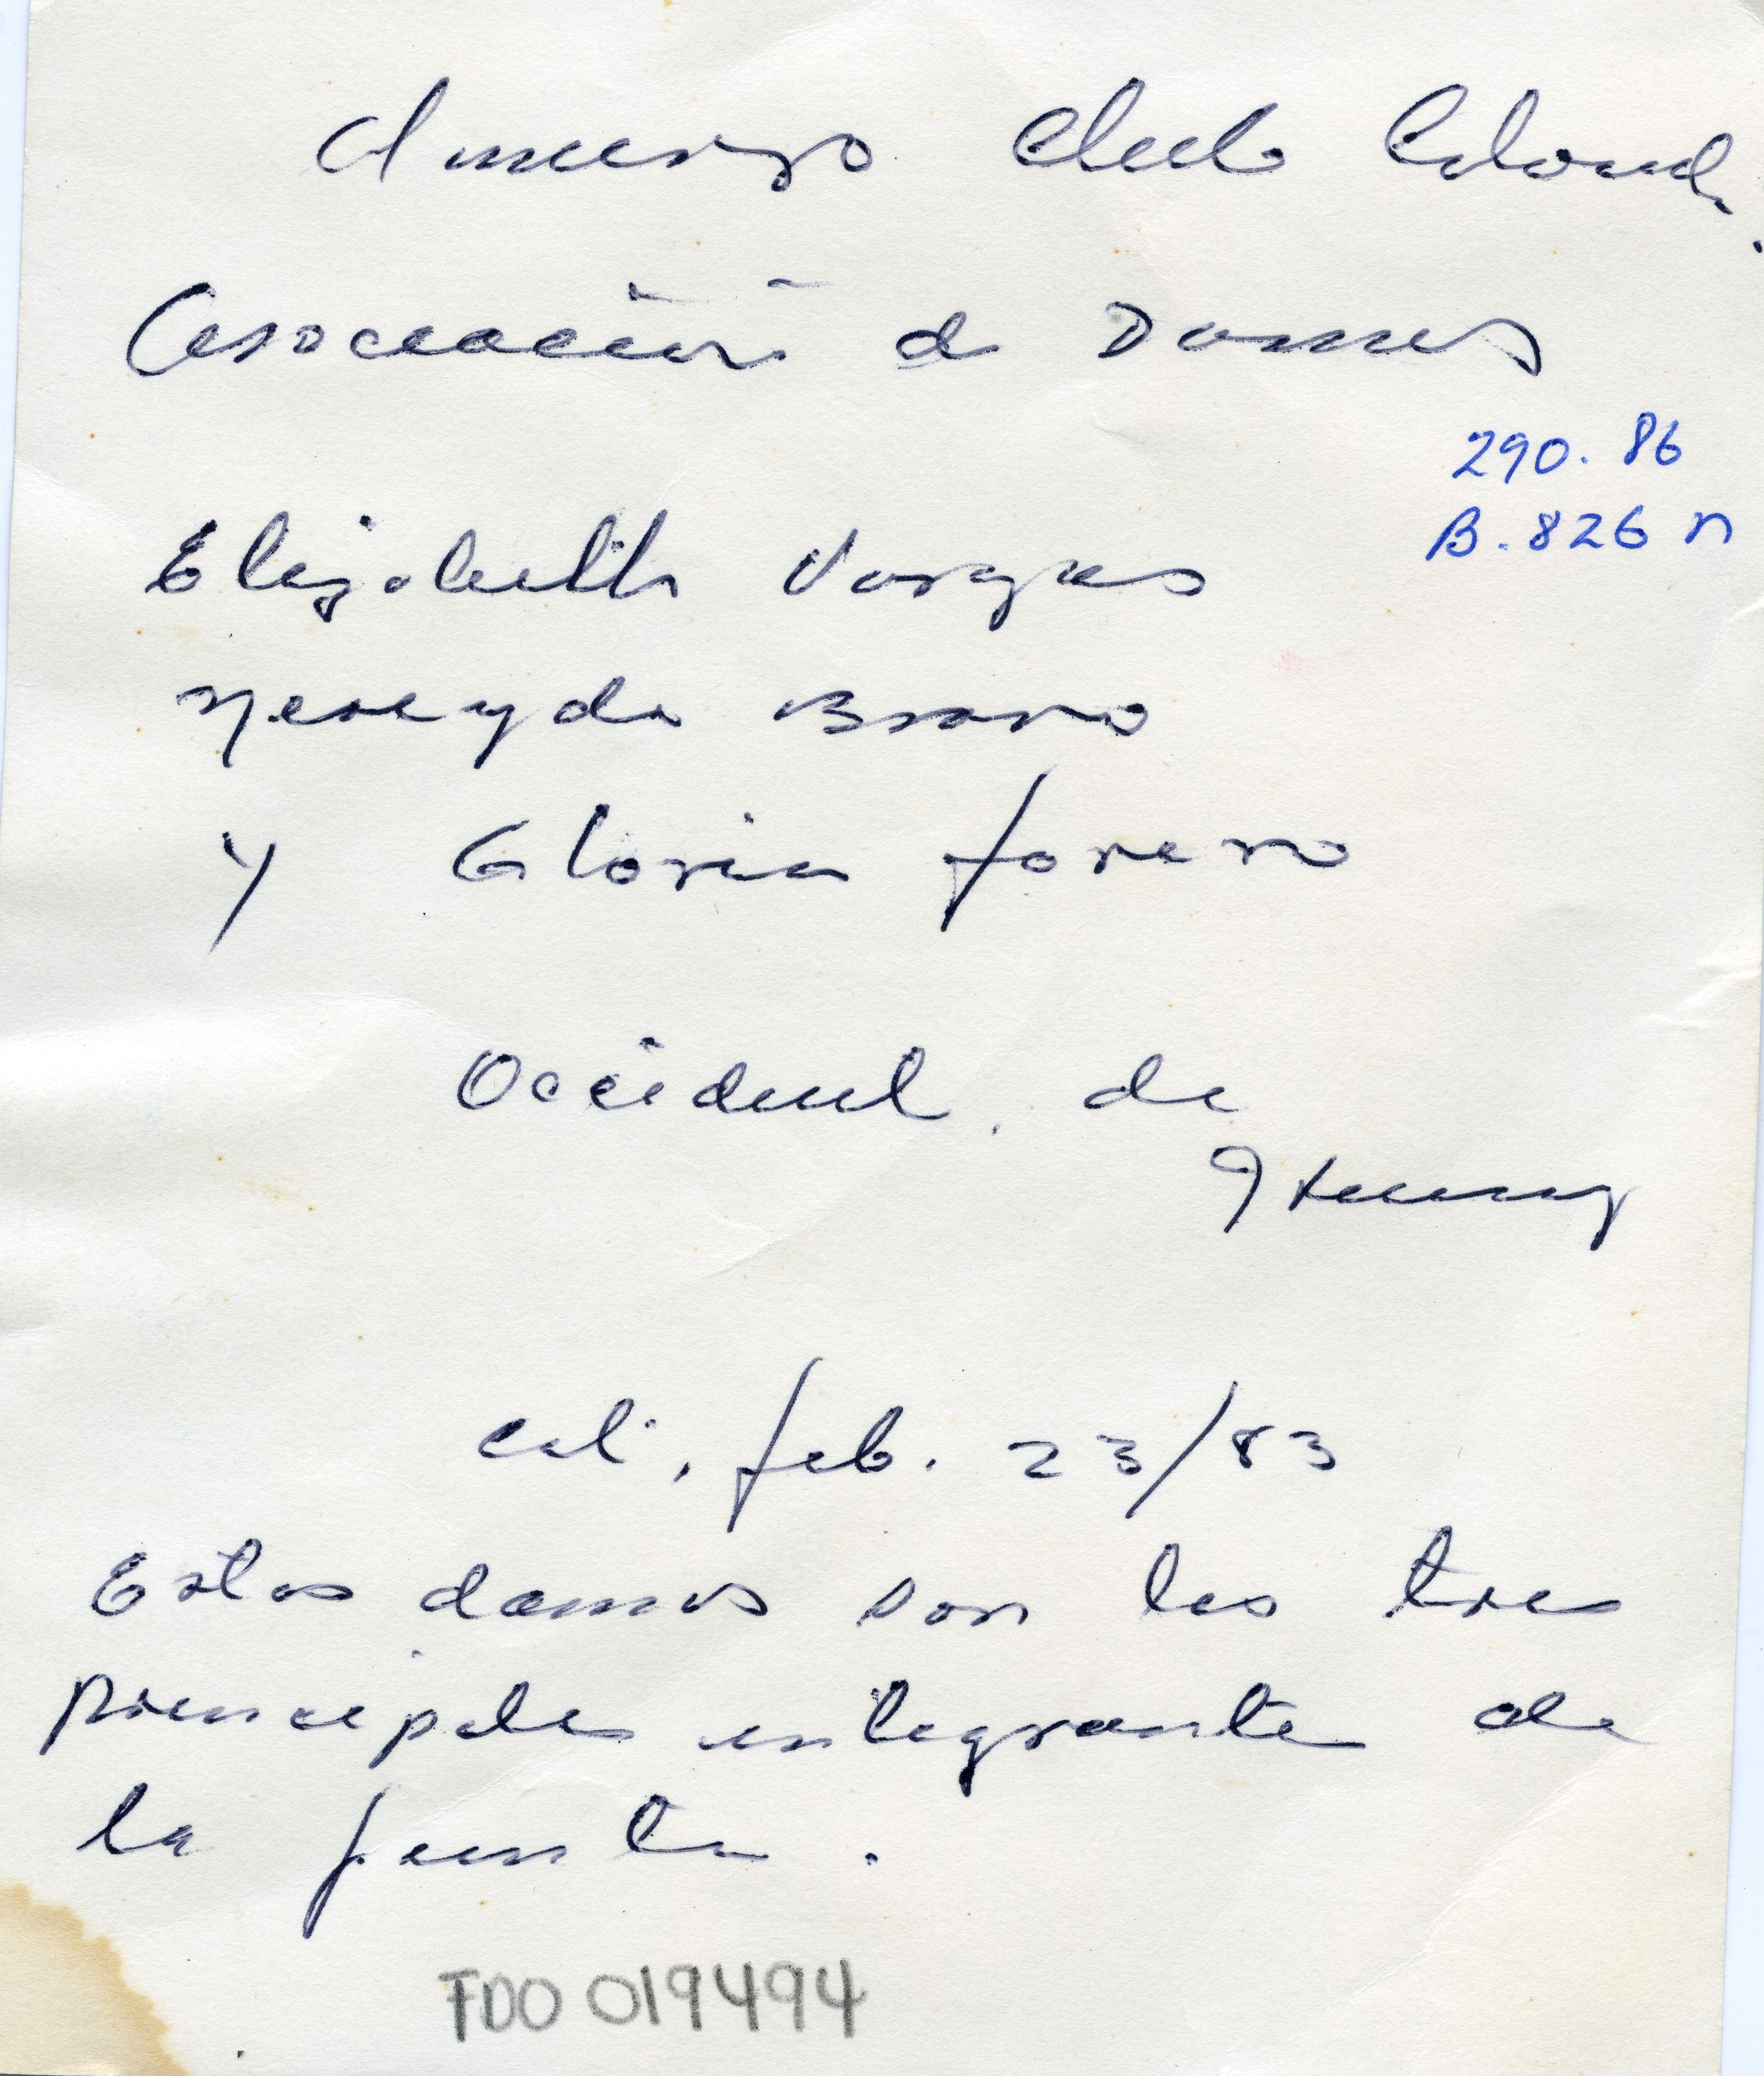 Almuerzo Club Colomb.
Asociación de Damas
290.86
B.826 n
Elizabeth Vargas
Nereyda Bravo
y Gloria forero
Occident. de
cali, feb. 23/83
Estas damas son las tres
principales integrantes de
la junta.
FDO 019494